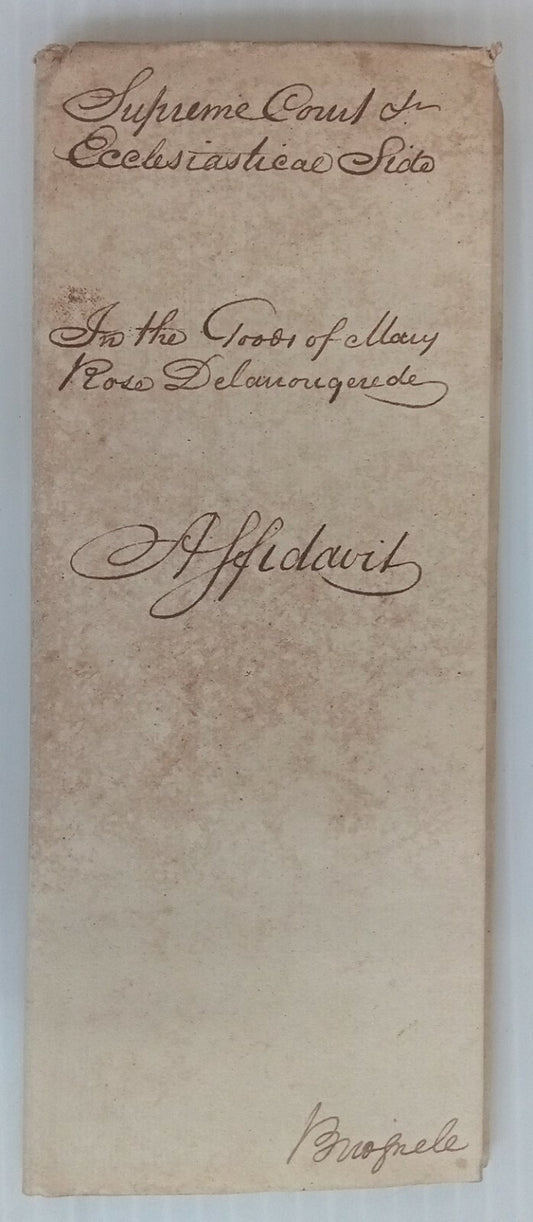 Supreme Court &
Ecclesiastical Side
In the Goods of Mary
Rose Delanougerede
Affidavit